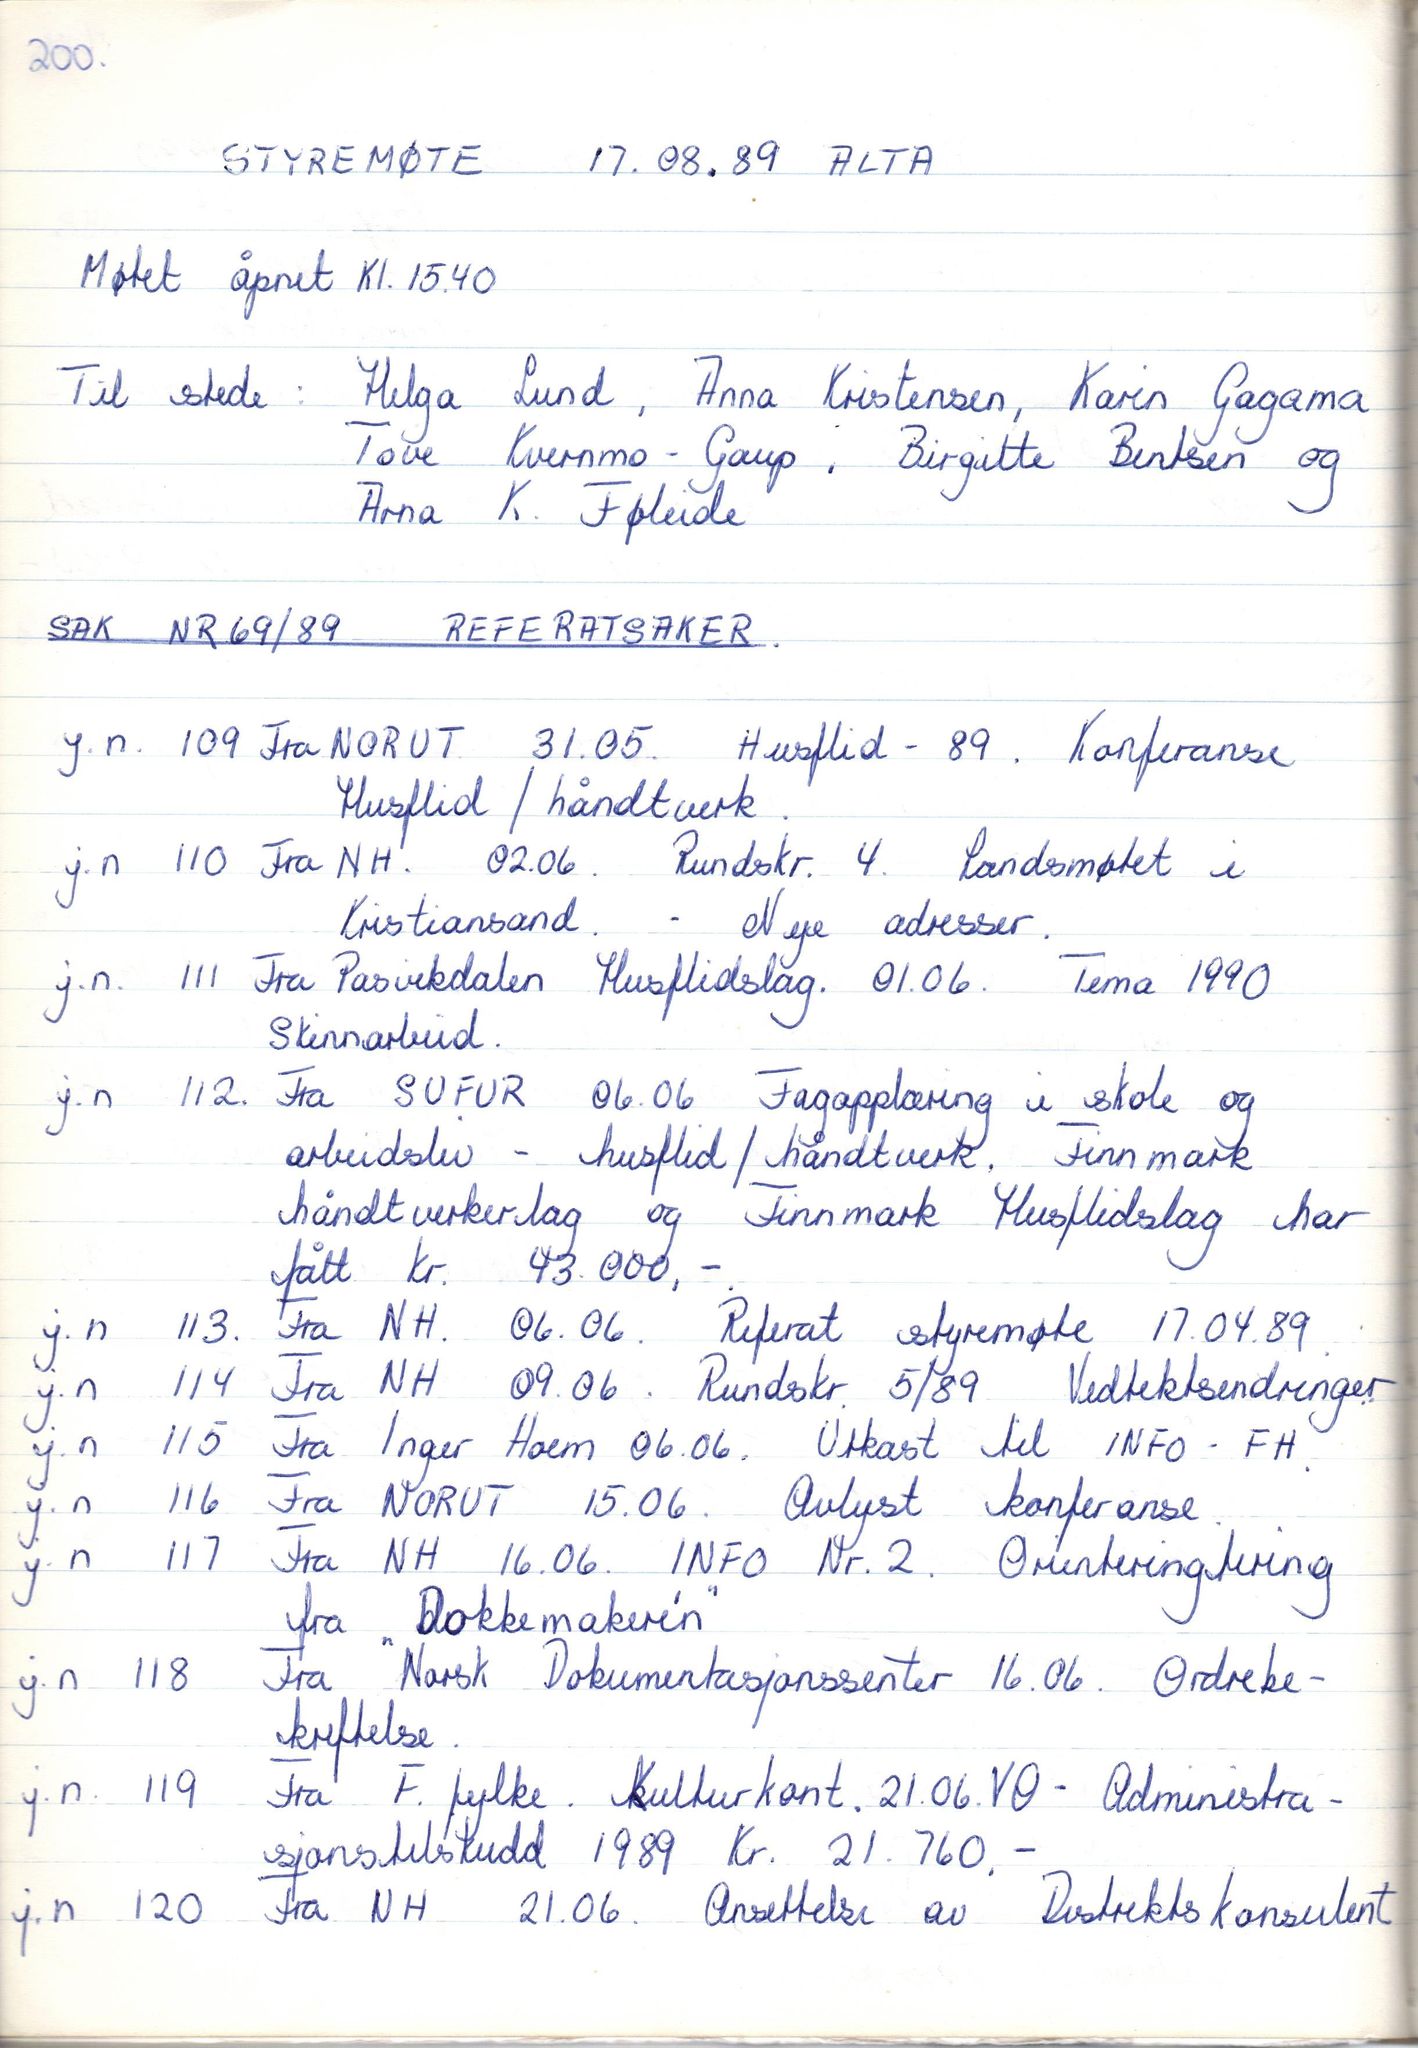 200.
STYREMØTE 17.08.89 ALTA
Møtet åpnet Kl. 15.40
Til stede : Helga Lund, Anna Kristensen, Karin Gagama
Tove Kvernmo - Gaup, Birgitte Bentsen og
Arna K. Føleide
SAK NR 69/89 REFERATSAKER.
j.n. 109 Fra NORUT 31.05. Husflid - 89. Konferanse
Husflid / håndtverk.
j.n 110 Fra NH. 02.06. Rundskr. 4. Landsmøtet i
Kristiansand. - Nye adresser.
j.n. 111 Fra Pasvikdalen Husflidslag. 01.06. Tema 1990
Skinnarbeid.
j.n 112. Fra SUFUR 06.06 Fagopplæring i skole og
arbeidsliv - husflid / håndtverk. Finnmark
håndtverkerlag og Finnmark Husflidslag har
fått kr. 43.000,-.
j.n 113. Fra NH. 06.06. Referat styremøte 17.04.89.
j.n 114 Fra NH 09.06. Rundskr. 5/89 Vedtektsendringer.
j.n 115 Fra Inger Hoem 06.06. Utkast til INFO - FH.
j.n 116 Fra NORUT 15.06. Avlyst konferanse.
j.n 117 Fra NH 16.06. INFO Nr. 2. Orienteringtering
fra "Dokkemakerin"
j.n 118 Fra Norsk Dokumentasjonssenter 16.06. Ordrebe-
kreftelse.
j.n. 119 Fra F. fylke. Kulturkont. 21.06. VO - Administra-
sjonstilskudd 1989 Kr. 21.760,-
j.n 120 Fra NH 21.06. Ansettelse av Distriktskonsulent